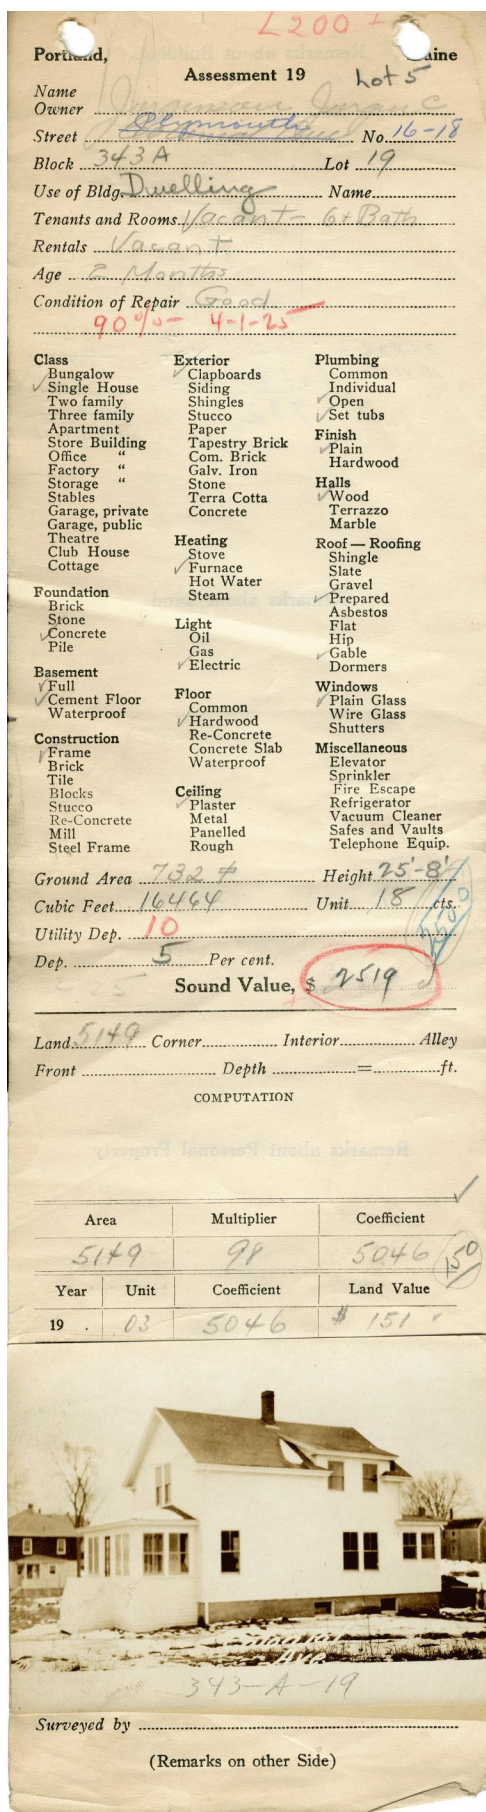 L200 +
Portland, Maine
Assessment 19 Lot 5
Name
Owner Jorgensen Jorgen C
Street Plymouth No. 16-18
Block 343A Lot 19
Use of Bldg. Dwelling Name
Tenants and Rooms Vacant - 6+Bath
Rentals Vacant
Age 2 Months
Condition of Repair Good
90% - 4-1-25
Class
Bungalow
✓ Single House
Two family
Three family
Apartment
Store Building
Office "
Factory "
Storage "
Stables
Garage, private
Garage, public
Theatre
Club House
Cottage
Foundation
Brick
Stone
✓ Concrete
Pile
Basement
✓ Full
✓ Cement Floor
Waterproof
Construction
✓ Frame
Brick
Tile
Blocks
Stucco
Re-Concrete
Mill
Steel Frame
Exterior
✓ Clapboards
Siding
Shingles
Stucco
Paper
Tapestry Brick
Com. Brick
Galv. Iron
Stone
Terra Cotta
Concrete
Heating
Stove
✓ Furnace
Hot Water
Steam
Light
Oil
Gas
✓ Electric
Floor
Common
✓ Hardwood
Re-Concrete
Concrete Slab
Waterproof
Ceiling
✓ Plaster
Metal
Panelled
Rough
Plumbing
Common
Individual
✓ Open
✓ Set tubs
Finish
✓ Plain
Hardwood
Halls
✓ Wood
Terrazzo
Marble
Roof — Roofing
Shingle
Slate
Gravel
✓ Prepared
Asbestos
Flat
Hip
✓ Gable
Dormers
Windows
✓ Plain Glass
Wire Glass
Shutters
Miscellaneous
Elevator
Sprinkler
Fire Escape
Refrigerator
Vacuum Cleaner
Safes and Vaults
Telephone Equip.
Ground Area 732 # Height 25'-8'
Cubic Feet 16464 Unit 18 cts.
2500
Utility Dep. 10
Dep. 5 Per cent.
Sound Value, $ 2519
Land 5149 Corner Interior Alley
Front Depth = ft.
COMPUTATION
Area Multiplier Coefficient
5149 98 5046 150
Year Unit Coefficient Land Value
19 . .03 5046 $ 151
343-A-19
Surveyed by
(Remarks on other Side)